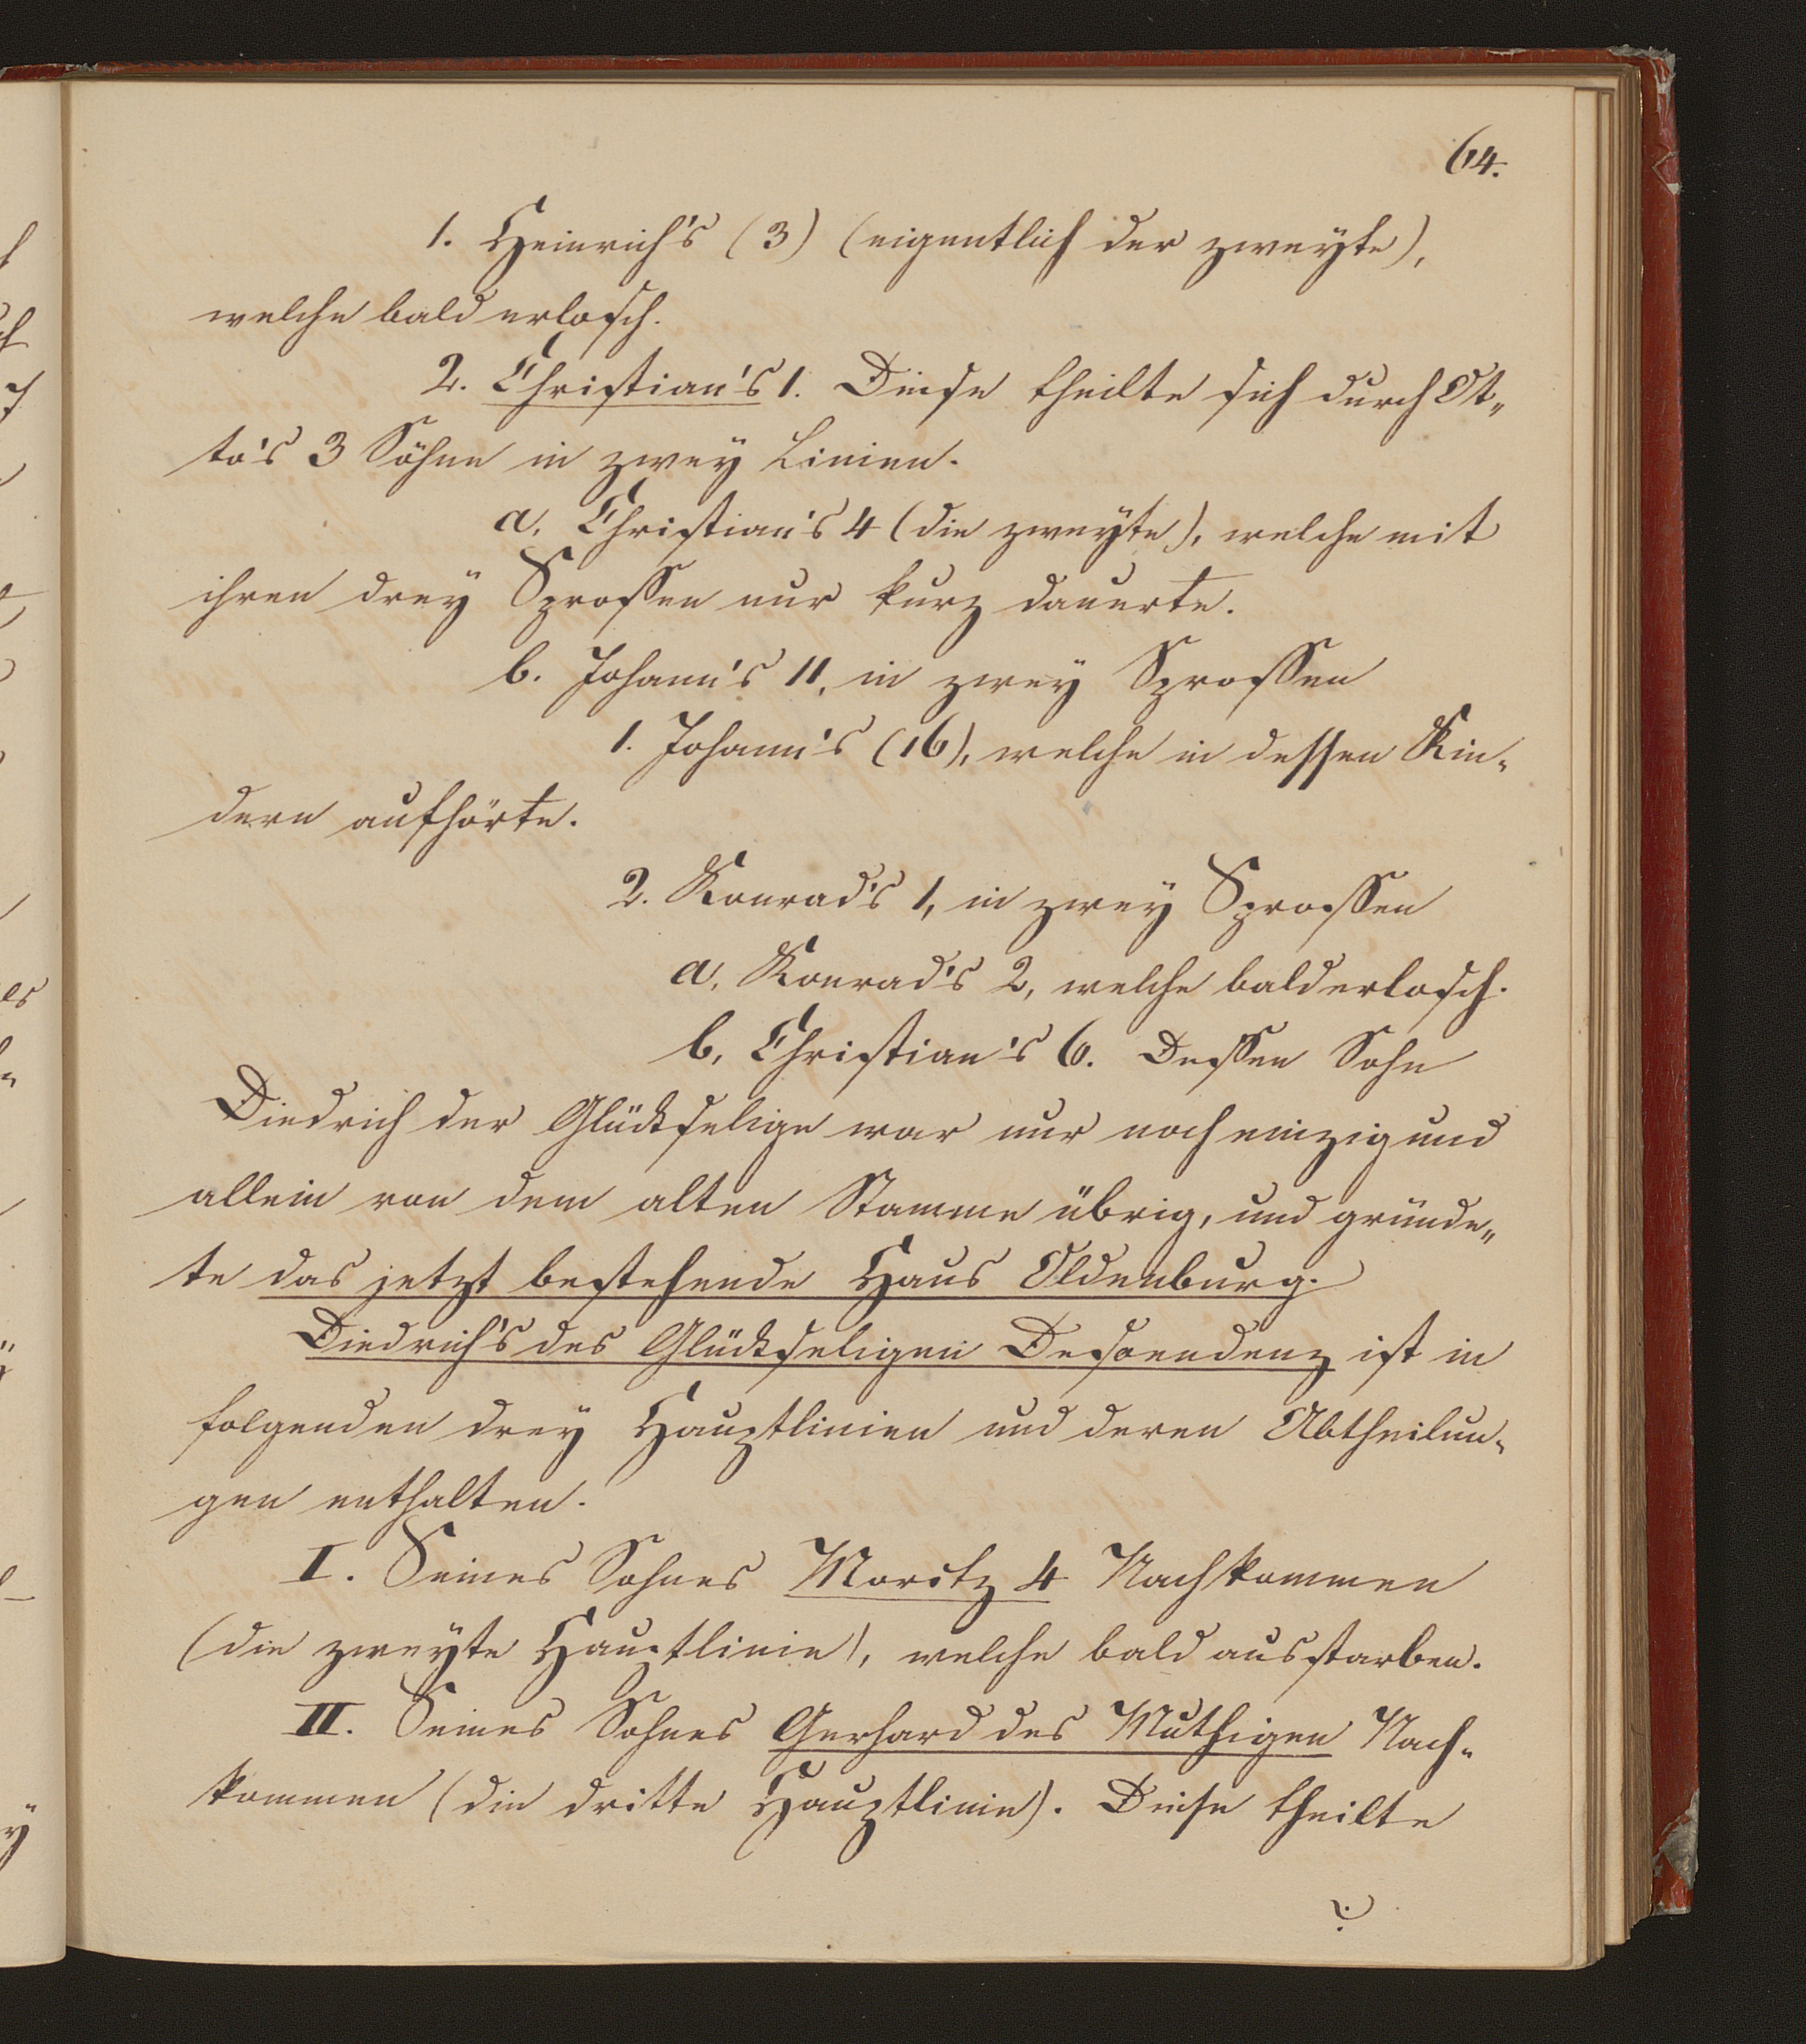 64.
1. Heinrich's (3) (eigentlich der zweyte),
welche bald erlosch.
2. Christian's 1. Diese theilte sich durch Ot„
to's 3 Söhne in zwey Linien.
a. Christian's 4 (die zweyte), welche mit
ihren drey Sprossen nur kurz dauerte.
b. Johann's 11, in zwey Sprossen
1. Johann's (16), welche in dessen Kin„
dern aufhörte.
2. Konrad's 1, in zwey Sprossen
a. Konrad's 2, welche bald erlosch.
b. Christian's 6. Dessen Sohn
Diedrich der Glückselige war nur noch einzig und
allein von dem alten Stamme übrig, und gründe„
te das jetzt bestehende Haus Oldenburg.
Diedrich's des Glückseligen Descendenz ist in
folgenden drey Hauptlinien und deren Abtheilun„
gen enthalten.
I. Seines Sohnes Moritz 4 Nachkommen
(die zweyte Hauptlinie), welche bald ausstarben.
II. Seines Sohnes Gerhard des Muthigen Nach„
kommen (die dritte Hauptlinie). Diese theilte